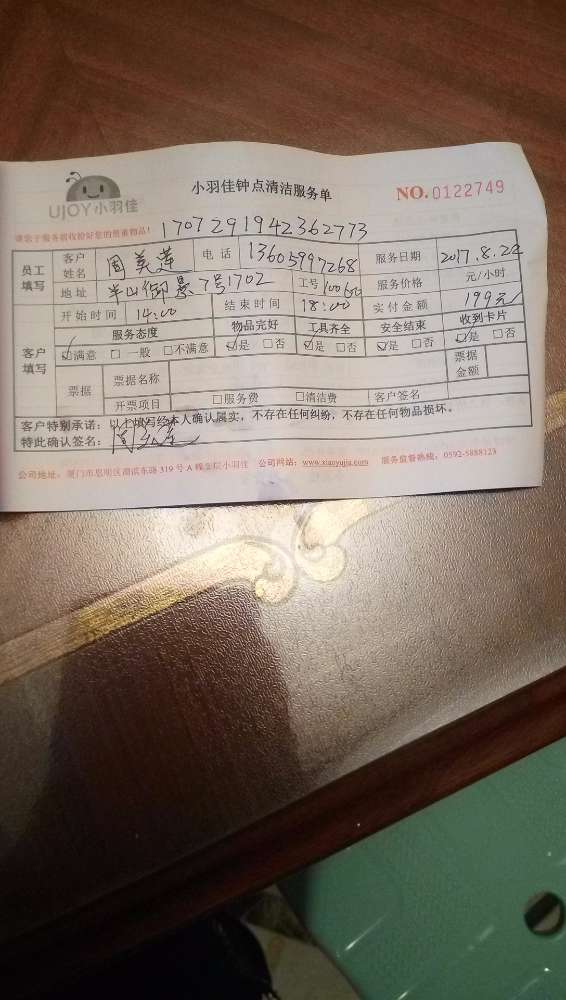 UJOY小羽佳
小羽佳钟点清洁服务单
NO.0122749
请您于服务前收检好您的贵重物品！ 1707291942362773
员工填写 客户姓名 周美莲 电话 13605997268 服务日期 2017.8.22
地址 半山御景7号1702 工号 服务价格 元/小时
开始时间 14:00 结束时间 18:00 实付金额 199元
客户填写 服务态度 物品完好 工具齐全 安全结束 收到卡片
☑满意 □一般 □不满意 ☑是 □否 ☑是 □否 ☑是 □否 ☑是 □否
票据 票据名称 票据金额
开票项目 □服务费 □清洁费 客户签名
客户特别承诺：以上填写经本人确认属实，不存在任何纠纷，不存在任何物品损坏。
特此确认签名：
公司地址：厦门市思明区湖滨东路319号A幢三层小羽佳 公司网站：www.xiaoyujia.com 服务监督热线：0592-5888123